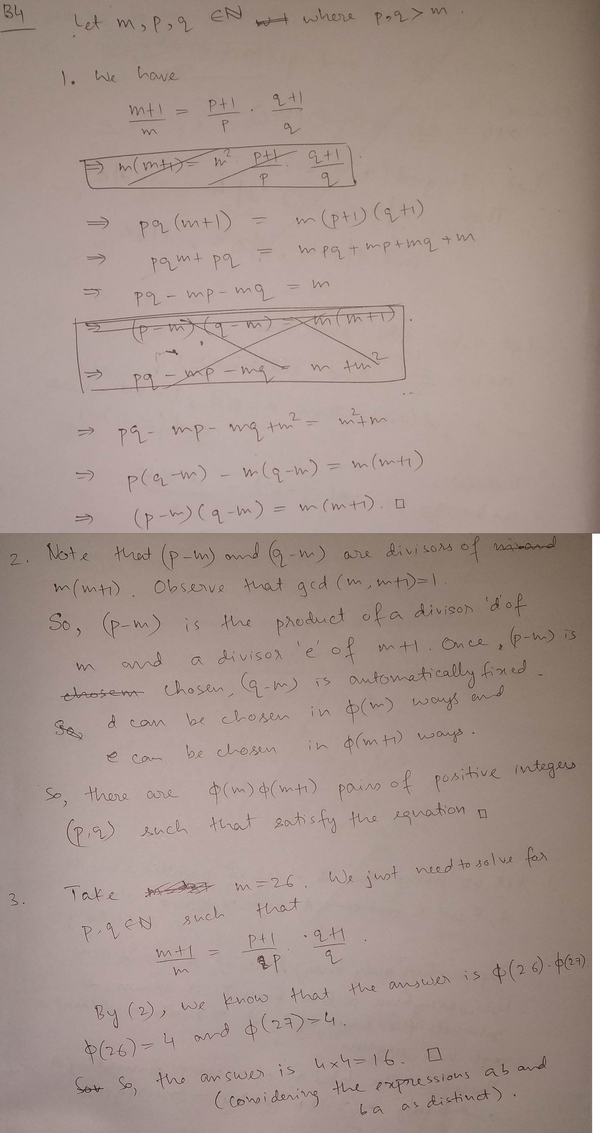 B4 Let m, p, q ∈ ℕ where p, q > m.
1. We have
(m+1)/m = (p+1)/p · (q+1)/q
⇒ m(m+1) = m² (p+1)/p · (q+1)/q
⇒ pq(m+1) = m(p+1)(q+1)
⇒ pqm + pq = mpq + mp + mq + m
⇒ pq - mp - mq = m
⇒ (p-m)(q-m) = m(m+1)
⇒ pq - mp - mq = m + m²
⇒ pq - mp - mq + m² = m² + m
⇒ p(q-m) - m(q-m) = m(m+1)
⇒ (p-m)(q-m) = m(m+1). □
2. Note that (p-m) and (q-m) are divisors of
m(m+1). Observe that gcd(m, m+1)=1.
So, (p-m) is the product of a divisor 'd' of
m and a divisor 'e' of m+1. Once, (p-m) is
chosem chosen, (q-m) is automatically fixed.
So d can be chosen in ϕ(m) ways and
e can be chosen in ϕ(m+1) ways.
So, there are ϕ(m)ϕ(m+1) pairs of positive integers
(p,q) such that satisfy the equation □
3. Take m=26. We just need to solve for
p, q ∈ ℕ such that
(m+1)/m = (p+1)/p · (q+1)/q.
By (2), we know that the answer is ϕ(26)·ϕ(27)
ϕ(26) = 4 and ϕ(27) = 4.
So, the answer is 4×4=16. □
(considering the expressions ab and
ba as distinct).